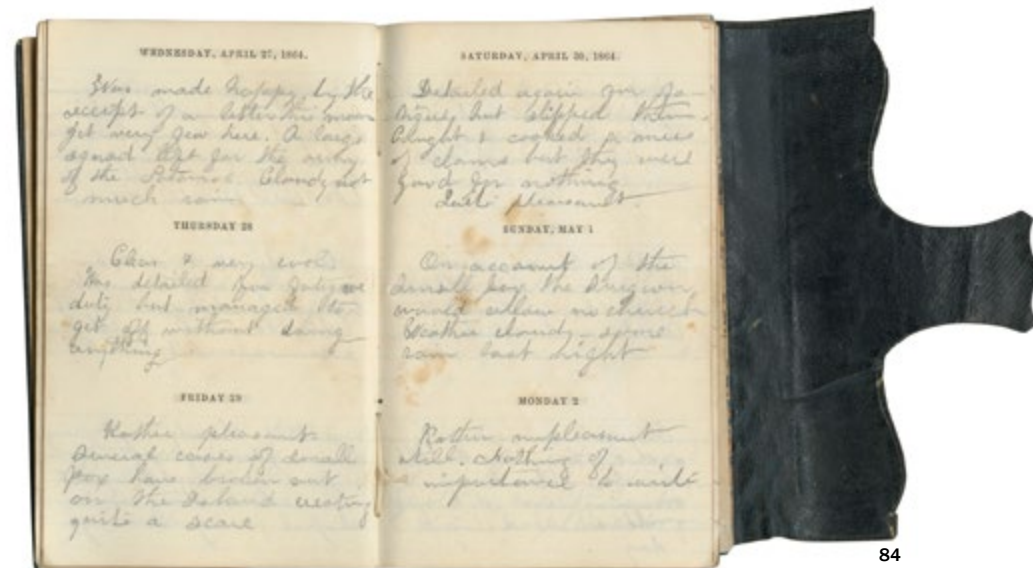 WEDNESDAY, APRIL 27, 1864.
Was made happy by the
receipt of a letter this morn
get very few here. A large
squad left for the army
of the Potomac. Cloudy not
much rain
THURSDAY 28
Clear & very cool
Was detailed for fatigue
duty but managed to
get off without doing
anything
FRIDAY 29
Rather pleasant
Several cases of small
pox have broken out
on the Island creating
quite a scare
SATURDAY, APRIL 30, 1864.
Detailed again for fa-
tigue, but slipped
Caught & cooked a mess
of clams but they were
good for nothing
Quite pleasant.
SUNDAY, MAY 1
On account of the
small pox the Surgeon
would allow no church
Weather cloudy some
rain last night
MONDAY 2
Rather unpleasant
still. Nothing of
importance to write
84